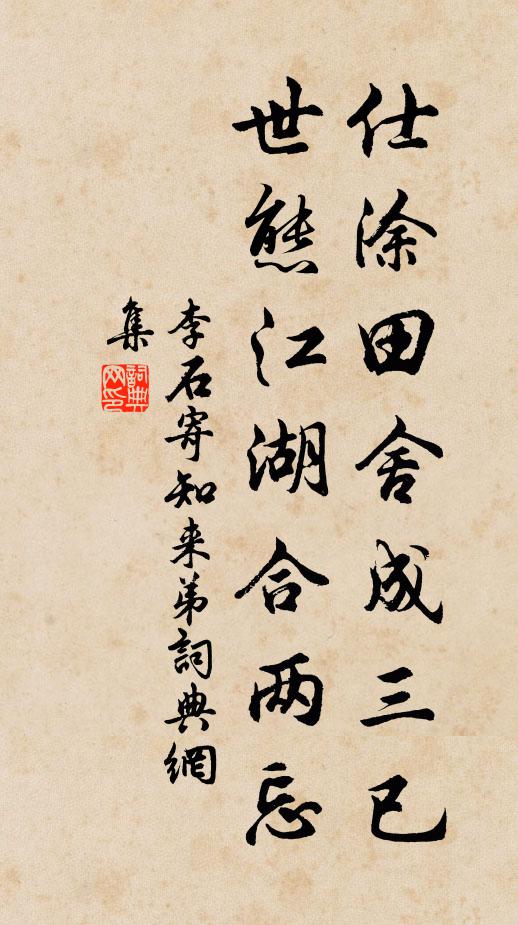 仕涂田舍成三已
世態江湖合两忘
李石寄知来弟詞典網
集
詞典網印